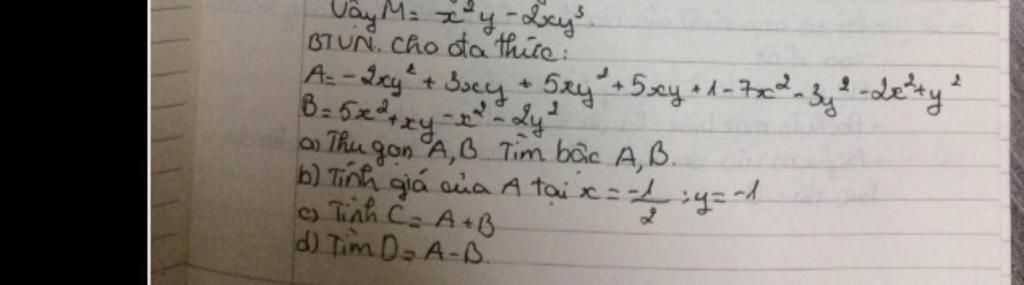 Vậy M = x²y - 2xy³
BTVN. Cho đa thức:
A = -2xy² + 3xy + 5xy² + 5xy + 1 - 7x² - 3y² - 2x² + y²
B = 5x² + xy - x² - 2y²
a) Thu gọn A, B. Tìm bậc A, B.
b) Tính giá của A tại x = -1/2 ; y = -1
c) Tính C = A + B
d) Tìm D = A - B.